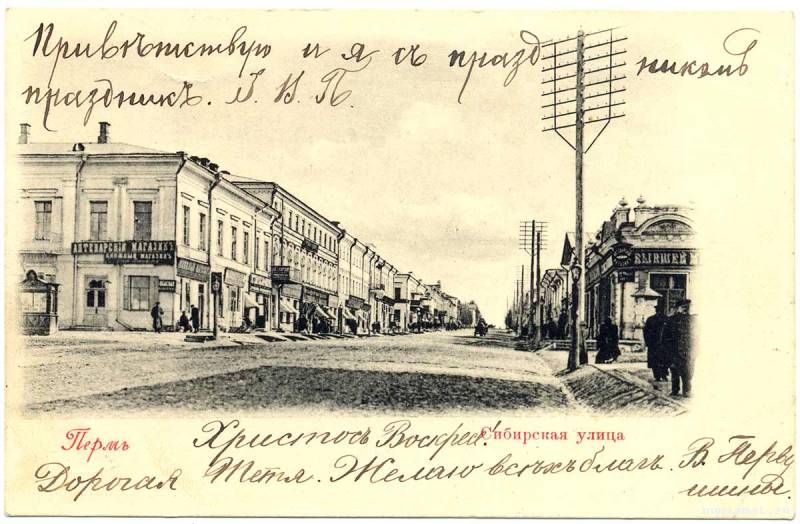 Привѣтствую и я съ праздникомъ
праздникъ. І. В. П.
АПТЕКАРСКІЙ МАГАЗИНЪ
КНИЖНЫЙ МАГАЗИНЪ
БЫВШЕЙ
Пермь
Сибирская улица
Христосъ Воскресъ!
Дорогая Тетя. Желаю всѣхъ благъ. В. Перву
шины.